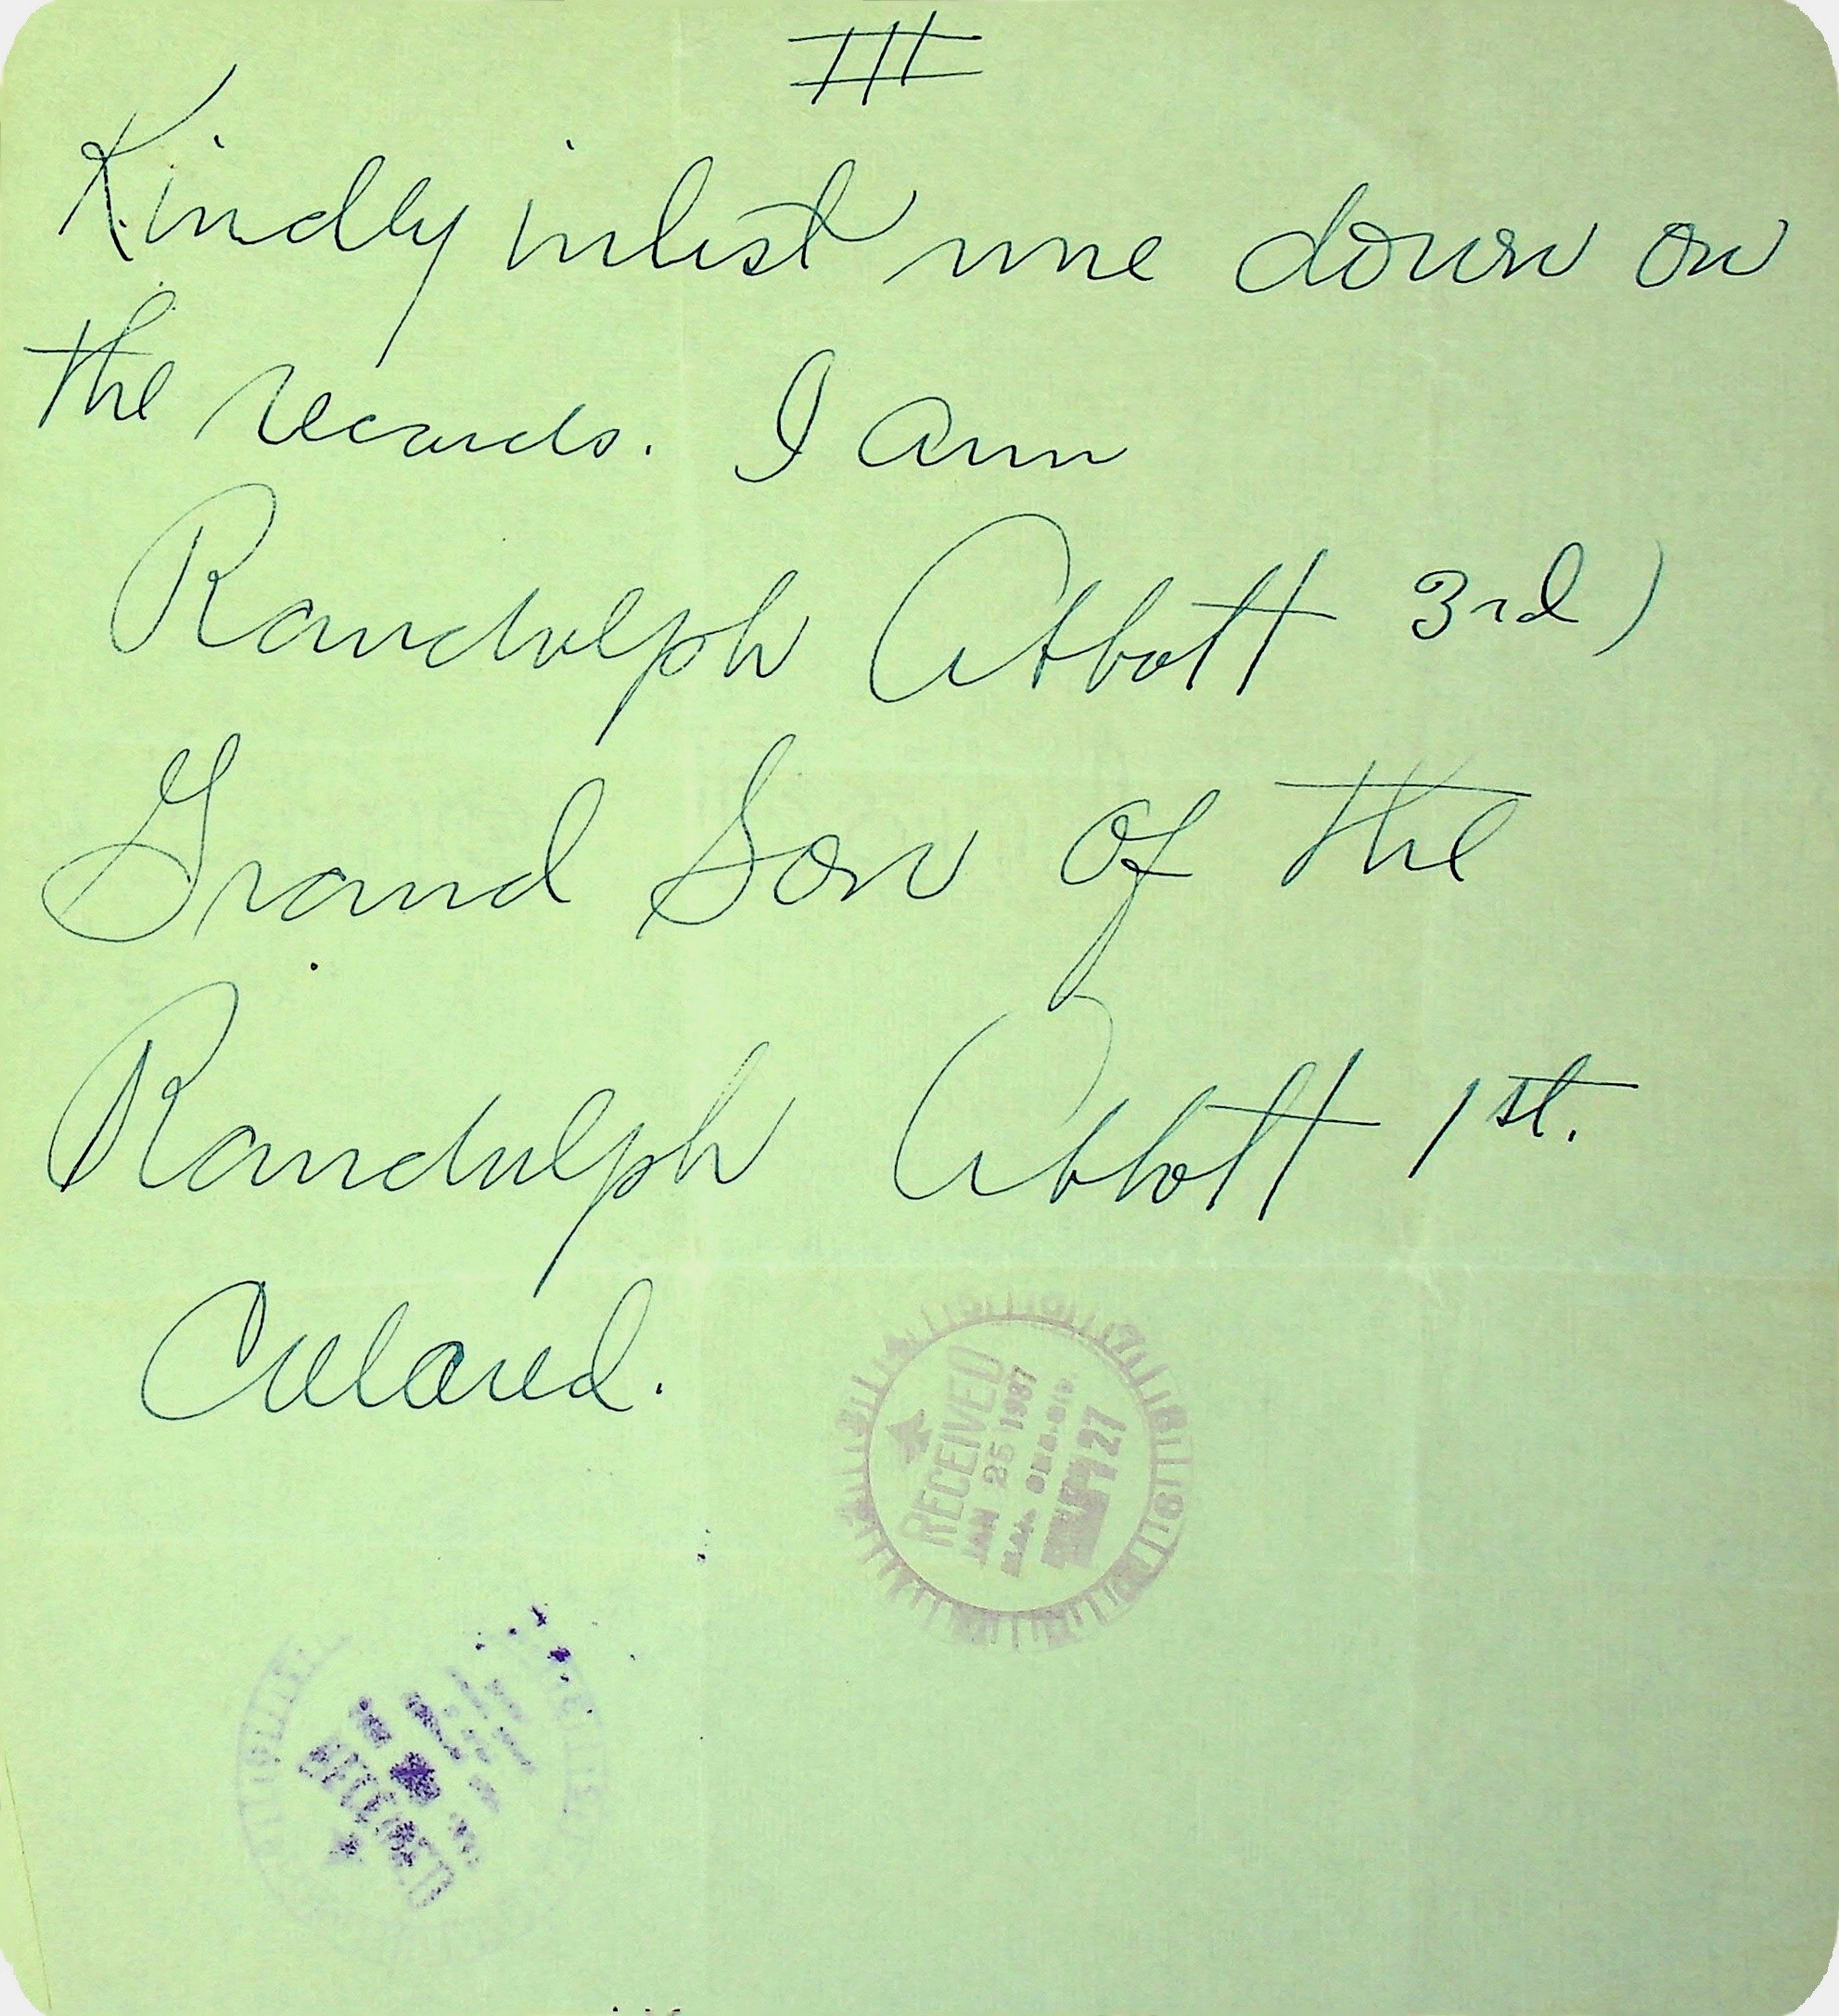 III
Kindly inlist me down on
the records. I am
Randolph Abbott 3rd)
Grand Son of the
Randolph Abbott 1st.
Colored.
RECEIVED
JAN 25 1937
127
RECEIVED